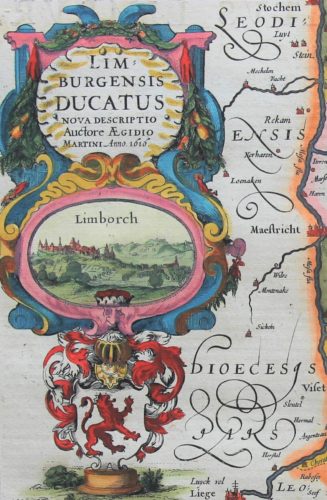 LIM-
BURGENSIS
DUCATUS
NOVA DESCRIPTIO
Auctore ÆGIDIO
MARTINI. Anno 1610
Limborch
Stochem
LEODI
Luyt
Stein
Mechelen
Vucht
Rekam
ENSIS
Borharen
Loenaken
Maestricht
Wilre
Montenake
Sichen
DIOECESIS
Viset
Sleutel
Hermal
PARS
Argenteau
Herstal
Luyck vel
Liege
LEO